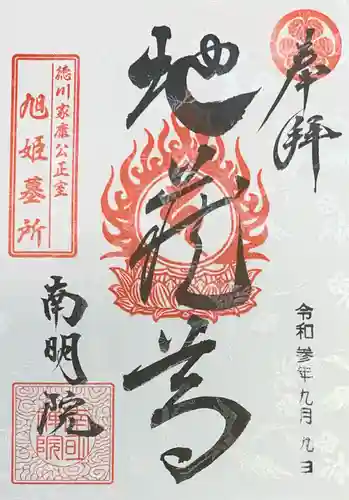 奉拝
地蔵尊
徳川家康公正室
旭姫墓所
南明院
令和参年九月九日